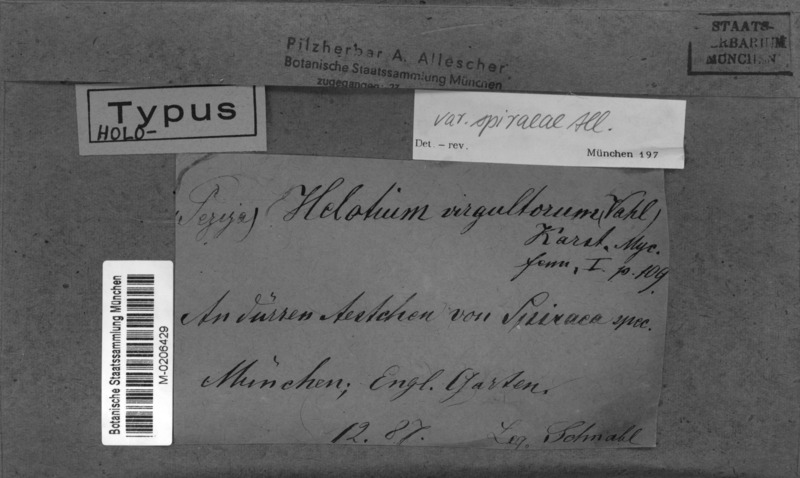 Pilzherbar A. Allescher
Botanische Staatssammlung München
zugegangen
STAATS-
HERBARIUM
MÜNCHEN
Typus
HOLO-
var. spiraeae All.
Det. – rev.
München 197
(Peziza) Helotium virgultorum (Vahl)
Karst. Myc.
fenn, I. p. 109.
An dürren Aestchen von Spiraea spec.
München; Engl. Garten.
12. 87. Leg. Schnabl
Botanische Staatssammlung München
M-0206429